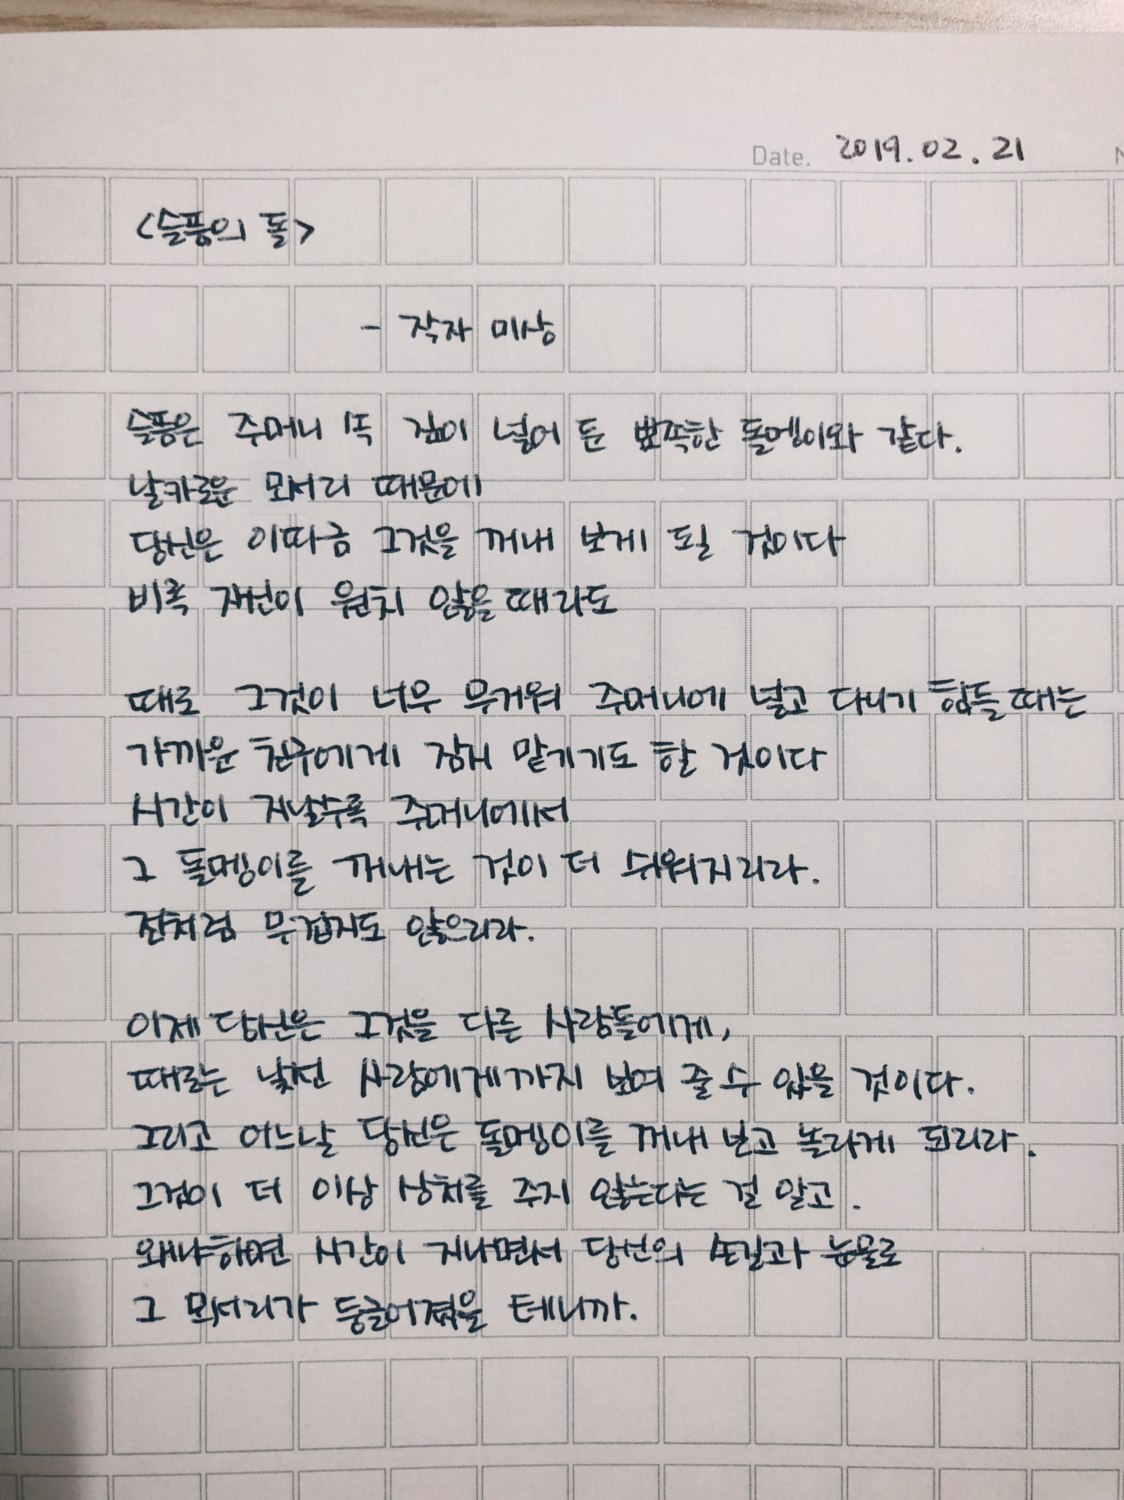 Date. 2019.02.21
<슬픔의 돌>
- 작자 미상
슬픔은 주머니 속 깊이 넣어 둔 뾰족한 돌멩이와 같다.
날카로운 모서리 때문에
당신은 이따금 그것을 꺼내 보게 될 것이다
비록 자신이 원치 않을때라도
때로 그것이 너무 무거워 주머니에 넣고 다니기 힘들때는
가까운 친구에게 잠시 맡기기도 할 것이다
시간이 지날수록 주머니에서
그 돌멩이를 꺼내는 것이 더 쉬워지리라.
전처럼 무겁지도 않으리라.
이제 당신은 그것을 다른 사람들에게,
때로는 낯선 사람에게까지 보여 줄 수 있을 것이다.
그리고 어느날 당신은 돌멩이를 꺼내 보고 놀라게 되리라.
그것이 더 이상 상처를 주지 않는다는 걸 알고.
왜냐하면 시간이 지나면서 당신의 손길과 눈물로
그 모서리가 둥글어졌을 테니까.